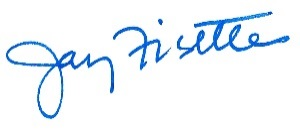 Jay Fisette